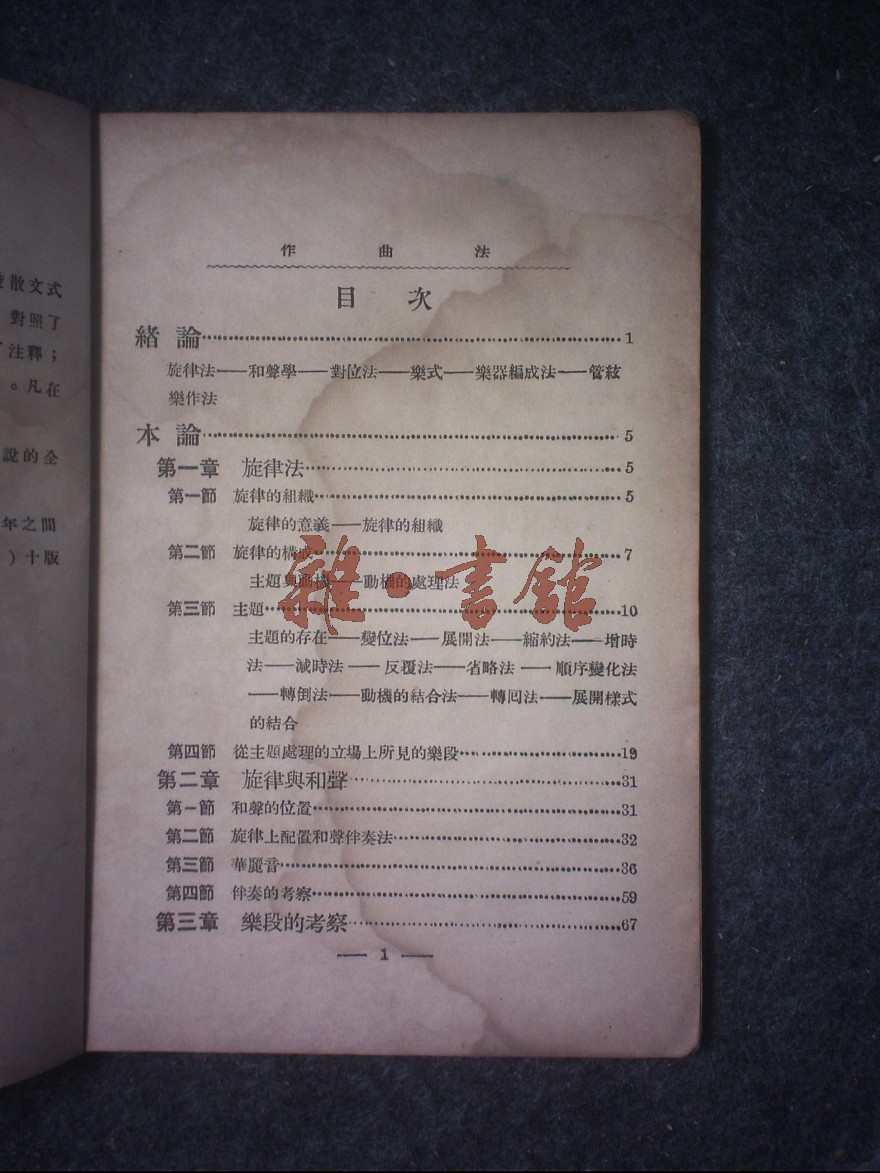 散文式
對照了
注釋；
。凡在
說的全
年之間
）十版
作曲法
目次
緒論……1
旋律法——和聲學——對位法——樂式——樂器編成法——管絃
樂作法
本論……5
第一章 旋律法……5
第一節 旋律的組織……5
旋律的意義——旋律的組織
第二節 旋律的構成……7
主題與動機——動機的處理法
第三節 主題……10
主題的存在——變位法——展開法——縮約法——增時
法——減時法——反覆法——省略法——順序變化法
——轉倒法——動機的結合法——轉囘法——展開樣式
的結合
第四節 從主題處理的立場上所見的樂段……19
第二章 旋律與和聲……31
第一節 和聲的位置……31
第二節 旋律上配置和聲伴奏法……32
第三節 華麗音……36
第四節 伴奏的考察……59
第三章 樂段的考察……67
— 1 —
雜·書館